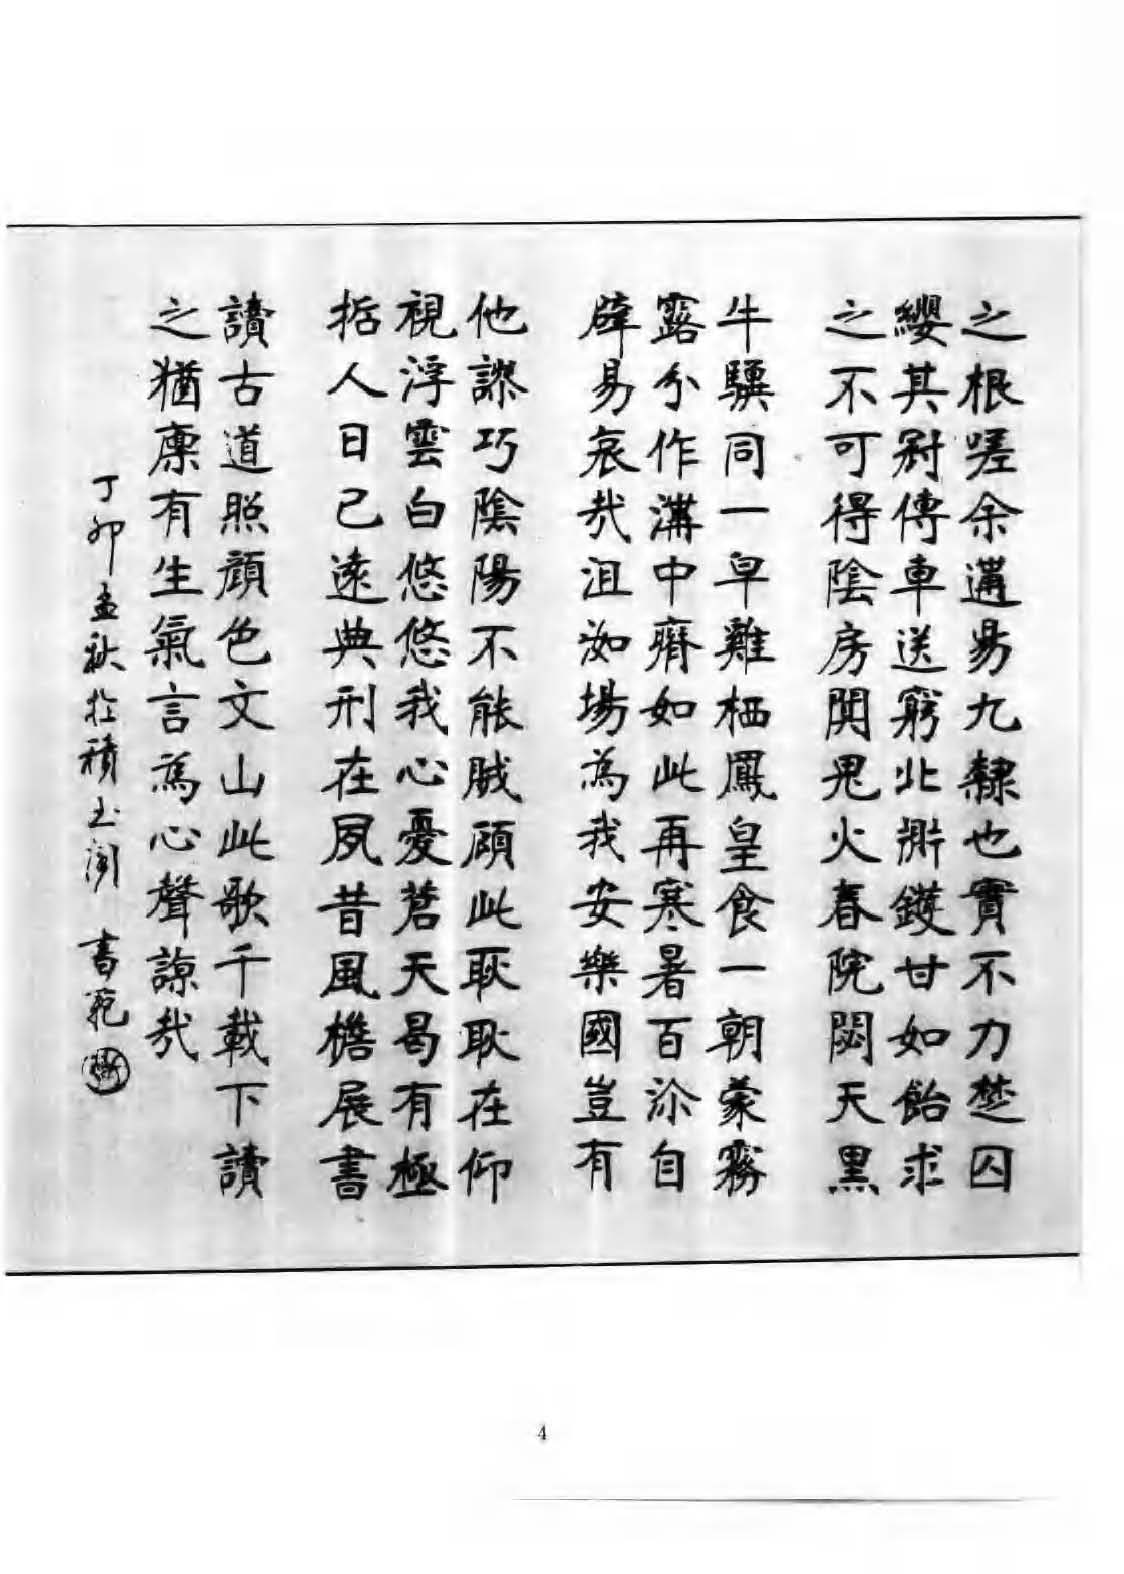 之根嗟余遘昜九隸也實不力楚囚
纓其冠傳車送窮北鼎鑊甘如飴求
之不可得陰房閴鬼火春院閟天黑
牛驥同一皁雞栖鳳皇食一朝蒙霧
露分作溝中瘠如此再寒暑百沴自
辟易哀哉沮洳場為我安樂國豈有
他謬巧陰陽不能賊顧此耿耿在仰
視浮雲白悠悠我心憂蒼天曷有極
哲人日已遠典刑在夙昔風檐展書
讀古道照顏色文山此歌千載下讀
之猶凜有生氣言為心聲諒哉
丁卯孟秋於積玉閣 書範
4